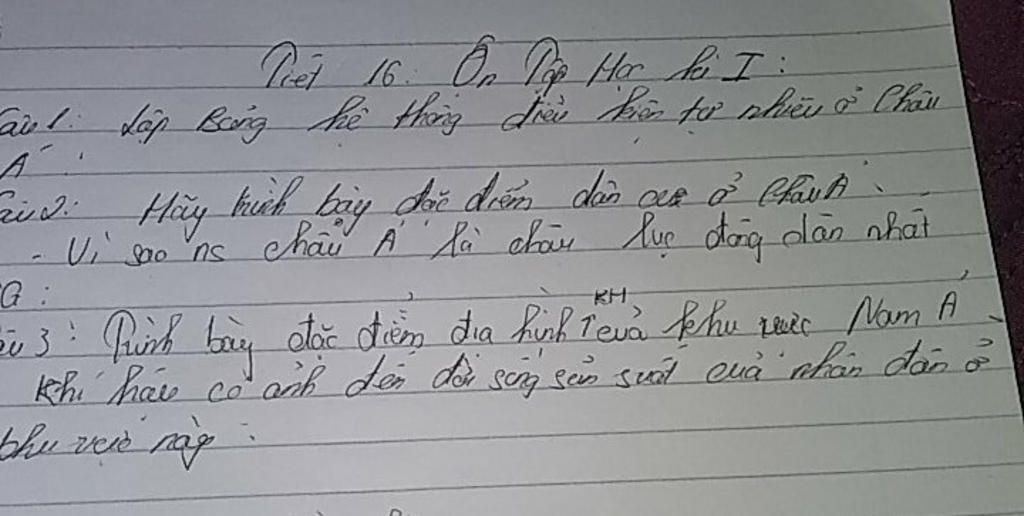 Tiết 16: Ôn Tập Học kì I:
Câu 1: Lập Bảng hệ thống điều kiện tự nhiên ở Châu
Á.
Câu 2: Hãy trình bày đặc điểm dân cư ở Châu Á.
- Vì sao ns Châu Á là châu lục đông dân nhất
G:
Câu 3: Trình bày đặc điểm địa hình, KH của khu vực Nam Á,
Khí hậu có ảnh đến đời sống sản suất của nhân dân ở
khu vực này.